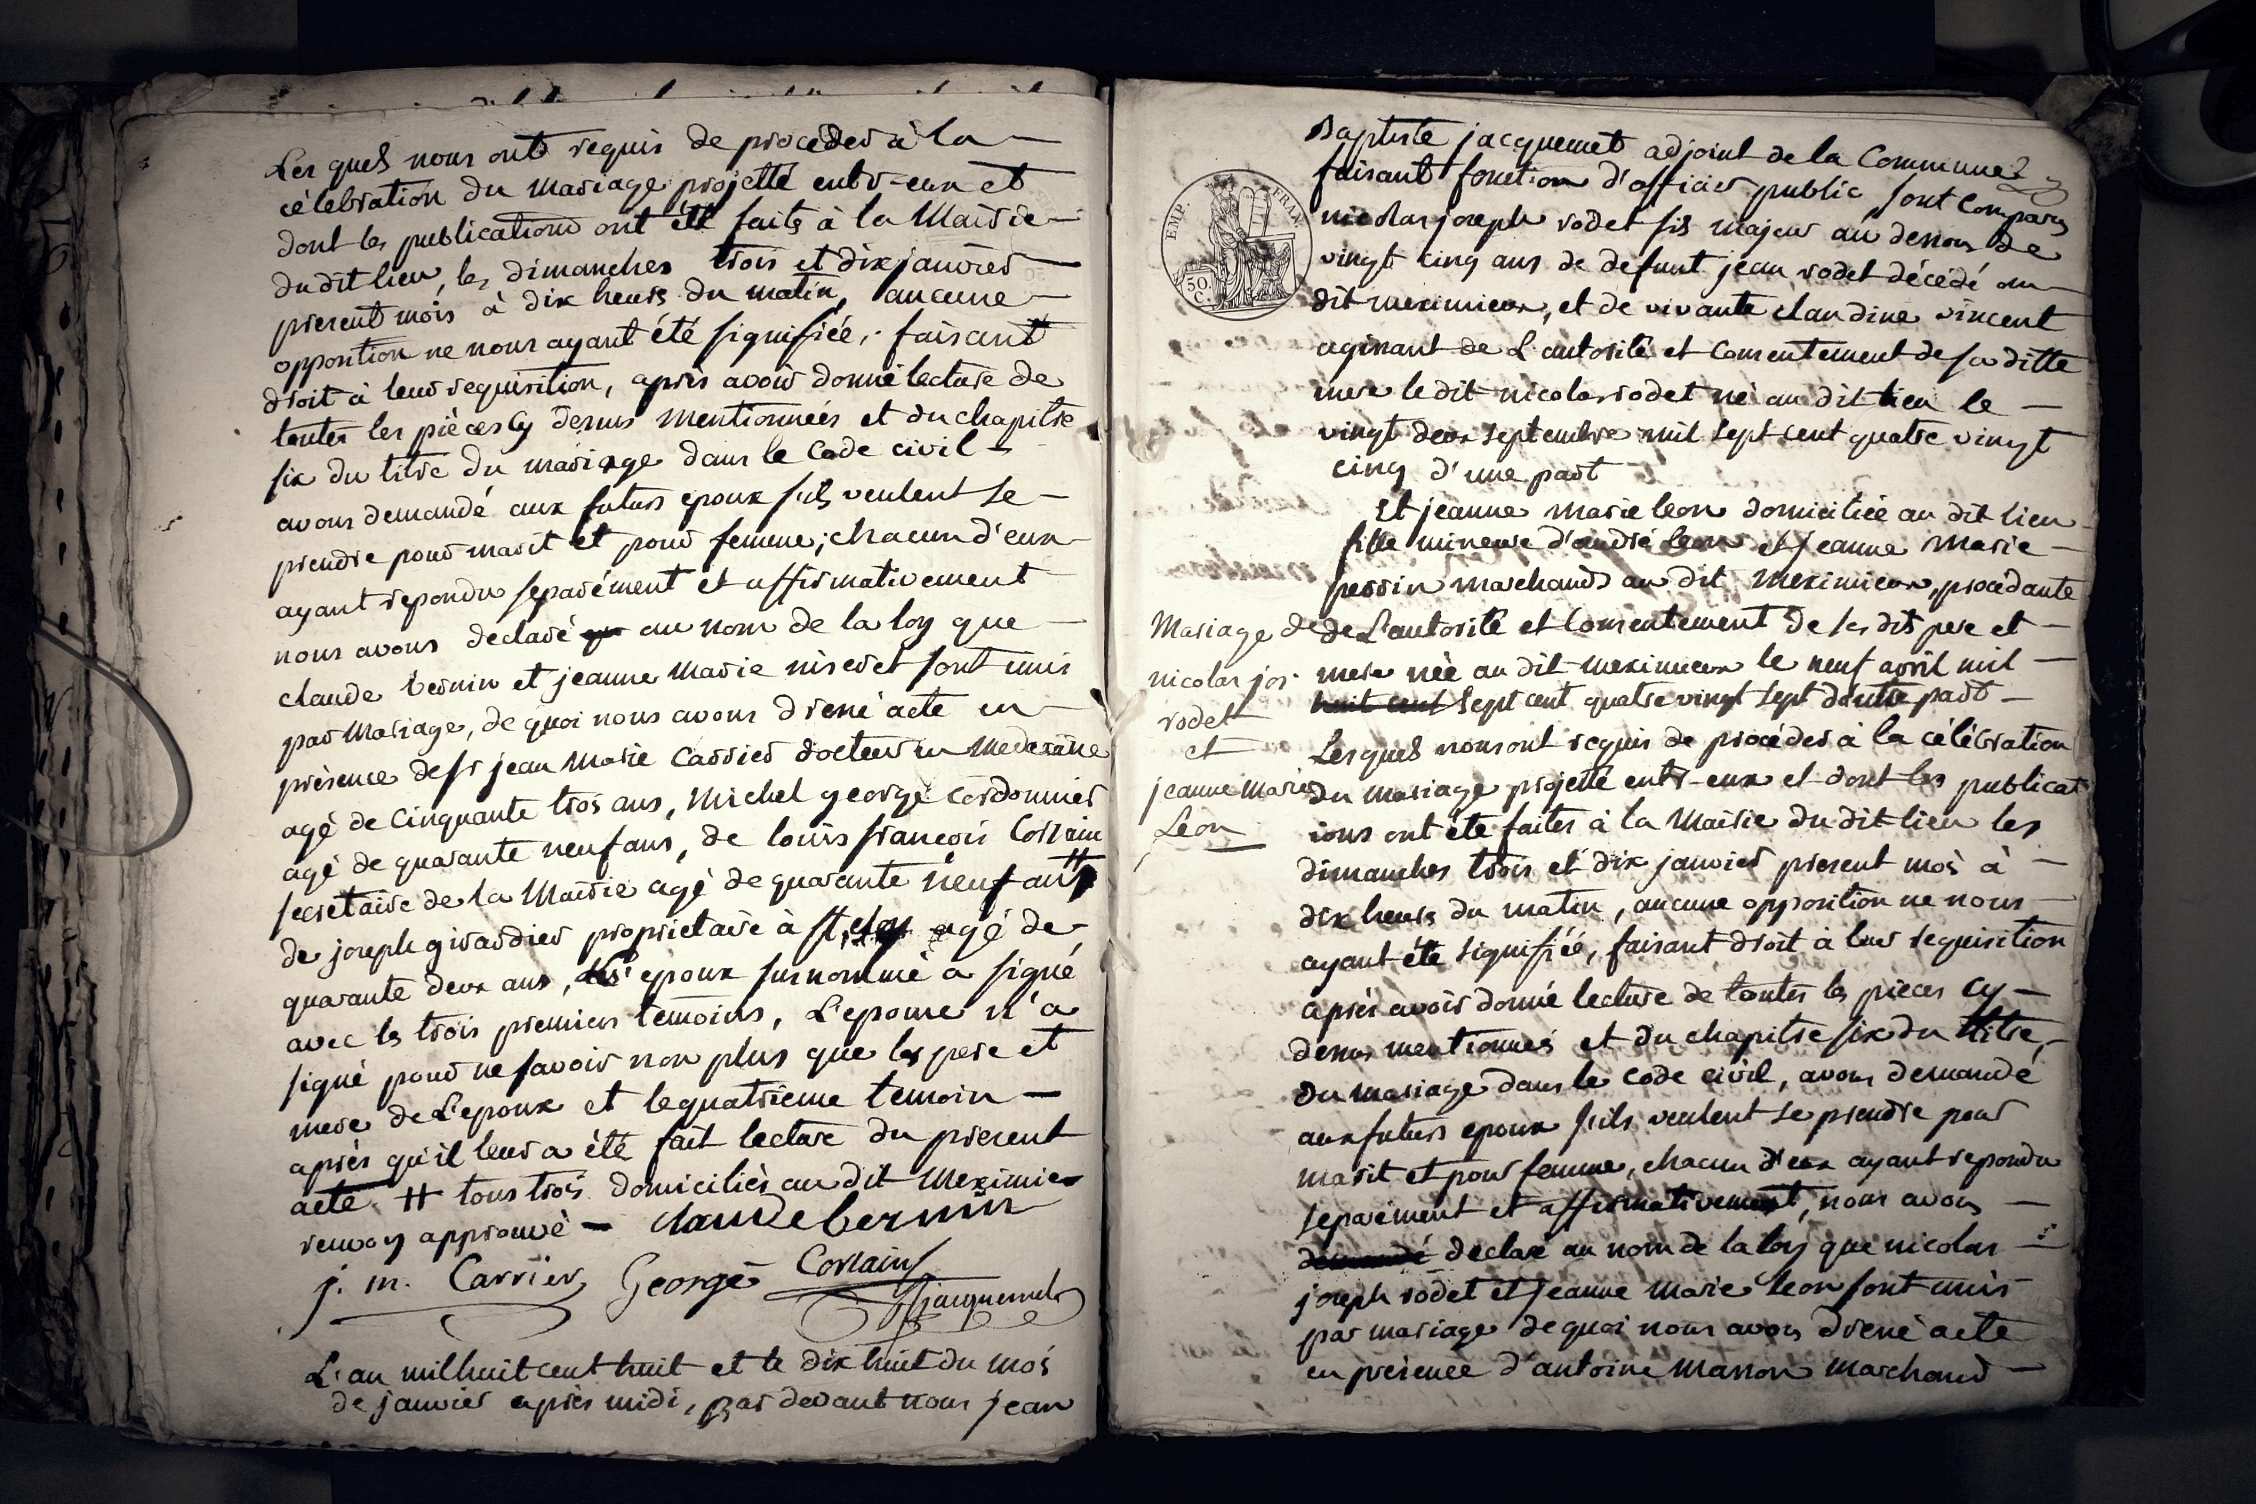 Les quels nous ont requis de proceder à la
célébration du mariage projetté entr-eux et
dont les publications ont été faits à la Mairie
du dit lieu, les dimanches trois et dix janvier
present mois à dix heurs du matin, aucune
opposition ne nous ayant été signifiée, faisant
droit à leur requisition, après avoir donné lecture de
toutes les pièces cy desus mentionnées et du chapitre
six du titre du mariage dans le code civil
avons demandé aux futurs epoux s'ils veulent se
prendre pour marit et pour femme; chacun d'eux
ayant repondu separément et affirmativement
nous avons declaré au nom de la loy que
claude bernin et jeanne marie niseret sont unis
par Mariage, de quoi nous avons dresé acte en
présence de sr jean Marie Carrier docteur en
agé de cinquante trois ans, Michel george cordonnier
agé de quarante neuf ans, de louis françois Corrain
secretaire de la Mairie agé de quarante neuf ans #
de joseph girardier proprietaire à st eloy agé de
quarante deux ans, epoux surnommé a signé
avec les trois premiers témoins, L'epouse n'a
signé pour ne savoir non plus que les pere et
mere de L'epoux et le quatrieme temoin
après qu'il leur a été fait lecture du present
acte # tous trois domiciliés au dit Meximieux
renvoy approuvé claude bernin
j. m. Carrier George Corrain
jacquemet
L'an mil huit cent huit et le dix huit du mois
de janvier après midi, par devant nous jean
Baptiste jacquemet adjoint de la Commune
faisant fonction d'officier public sont comparus
EMP. FRAN.
50. C.
nicolas joseph rodet fils majeur au desous de
vingt cinq ans de defunt jean rodet décédé au
dit meximieux, et de vivante claudine vincent
agissant de L'autorité et consentement de sa ditte
mere le dit nicolas rodet né au dit lieu le
vingt deux septembre mil sept cent quatre vingt
cinq d'une part
Et jeanne marie leon domiciliée au dit lieu
fille mineure d'andré Leon et jeanne Marie
perrin marchands au dit meximieux, procedante
de L'autorité et Consentement de ses dits pere et
mere née au dit meximieux le neuf avril mil
huit cent sept cent quatre vingt sept d'autre part
Mariage de
nicolas jos.
rodet
et
jeanne marie
Leon
Lesquels nous ont requis de procéder à la célébration
du mariage projetté entr-eux et dont les publicat
ions ont été faites à la Mairie du dit lieu les
dimanches trois et dix janvier present mois à
dix heurs du matin, aucune opposition ne nous
ayant été signifiée, faisant droit à leur requisition
après avoir donné lecture de toutes les pieces cy
desus mentionnés et du chapitre six du titre
du mariage dans le code civil, avons demandé
aux futurs epoux s'ils veulent se prendre pour
marit et pour femme, chacun d'eux ayant repondu
separément et affirmativement, nous avons
demandé declaré au nom de la loy que nicolas
joseph rodet et jeanne marie Leon sont unis
par mariage de quoi nous avons dresé acte
en présence d'antoine Masson Marchand